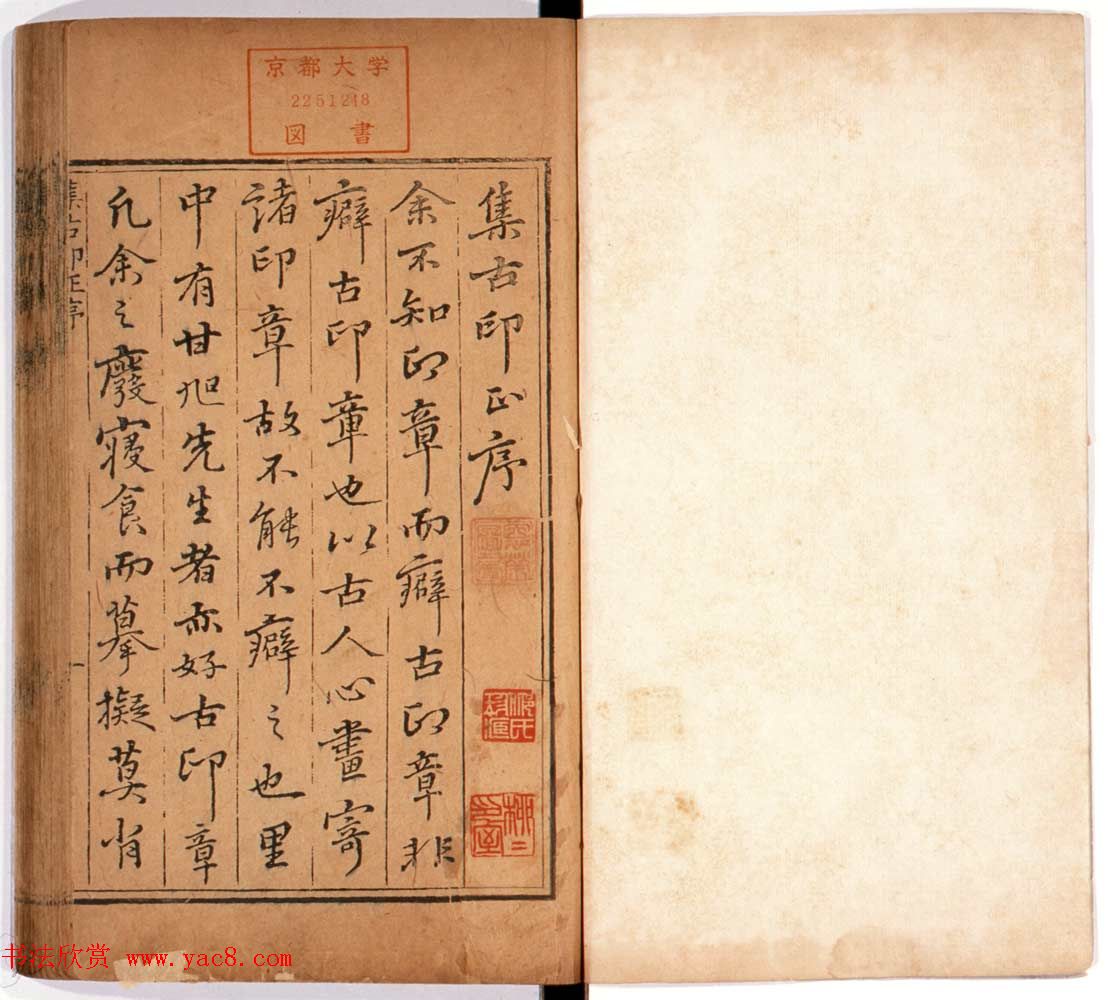 京都大学
2251218
図書
集古印正序
余不知印章而癖古印章非
癖古印章也以古人心畫寄
諸印章故不能不癖之也里
中有甘旭先生者亦好古印章
凡余之廢寢食而摹擬莫肖
集古印正序
一
书法欣赏 www.yac8.com